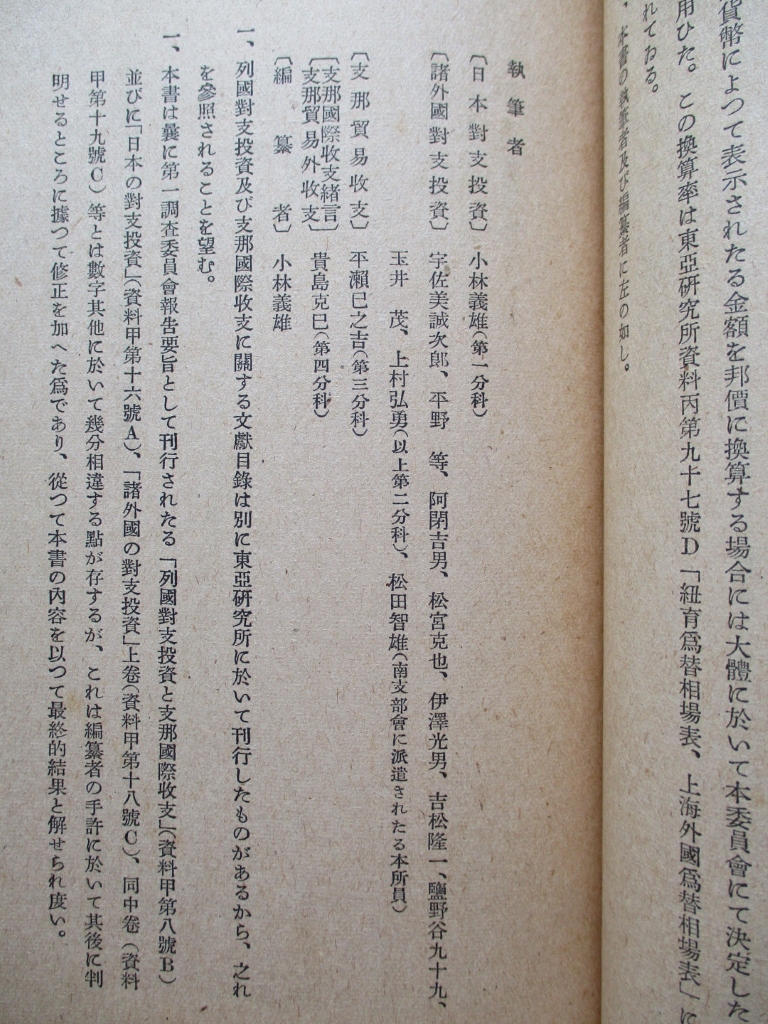 貨幣によつて表示されたる金額を邦價に換算する場合には大體に於いて本委員會にて決定した
用ひた。この換算率は東亞硏究所資料丙第九十七號D「紐育爲替相場表、上海外國爲替相場表」に
れてゐる。
、本書の執筆者及び編纂者に左の如し。
執筆者
〔日本對支投資〕 小林義雄(第一分科)
〔諸外國對支投資〕 宇佐美誠次郎、平野 等、阿閉吉男、松宮克也、伊澤光男、吉松隆一、鹽野谷九十九、
玉井 茂、上村弘勇(以上第二分科)、松田智雄(南支部會に派遣されたる本所員)
〔支那貿易收支〕 平瀨巳之吉(第三分科)
〔支那國際收支緒言〕
〔支那貿易外收支〕 貴島克巳(第四分科)
〔編纂者〕 小林義雄
一、列國對支投資及び支那國際收支に關する文獻目錄は別に東亞硏究所に於いて刊行したものがあるから、之れ
を參照されることを望む。
一、本書は曩に第一調査委員會報吿要旨として刊行されたる「列國對支投資と支那國際收支」(資料甲第八號B)
並びに「日本の對支投資」(資料甲第十六號A)、「諸外國の對支投資」上卷(資料甲第十八號C)、同中卷(資料
甲第十九號C)等とは數字其他に於いて幾分相違する點が存するが、これは編纂者の手許に於いて其後に判
明せるところに據つて修正を加へた爲であり、從つて本書の內容を以つて最終的結果と解せられ度い。